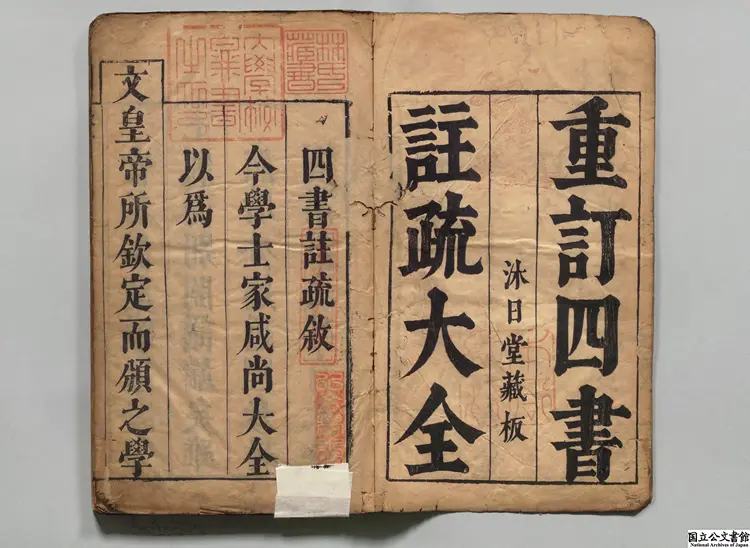 重訂四書
沐日堂藏板
註疏大全
四書註疏敘
今學士家咸尚大全
以爲
文皇帝所欽定而頒之學
国立公文書館
National Archives of Japan